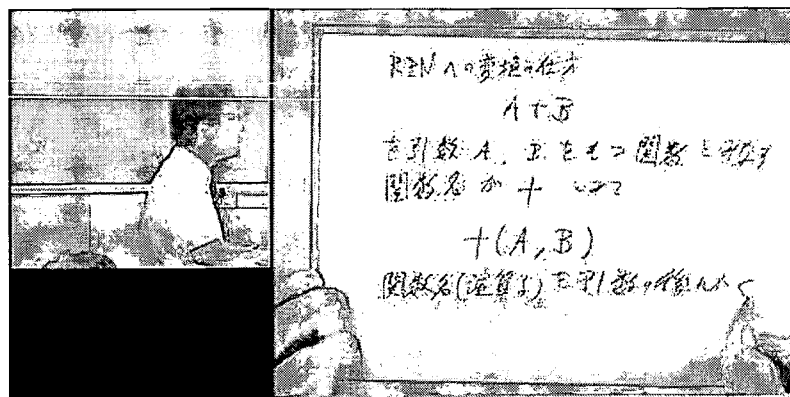 RPNへの変換の仕方
A+B
を引数A, Bをもつ関数とみなす
関数名が +
+(A, B)
関数名(演算子)を引数の後ろへ